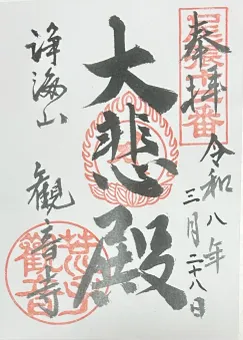 奉拝
令和八年
三月二十八日
大悲殿
浄海山
観音寺
荒子
観音